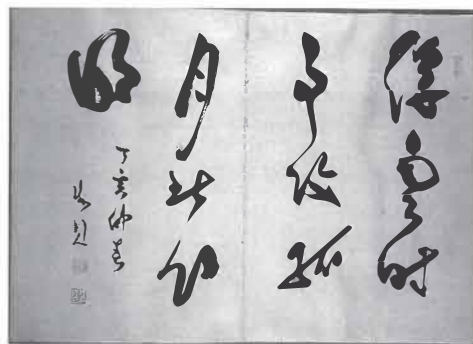 浮雲时
事改孤
月此心
明
丁亥仲春